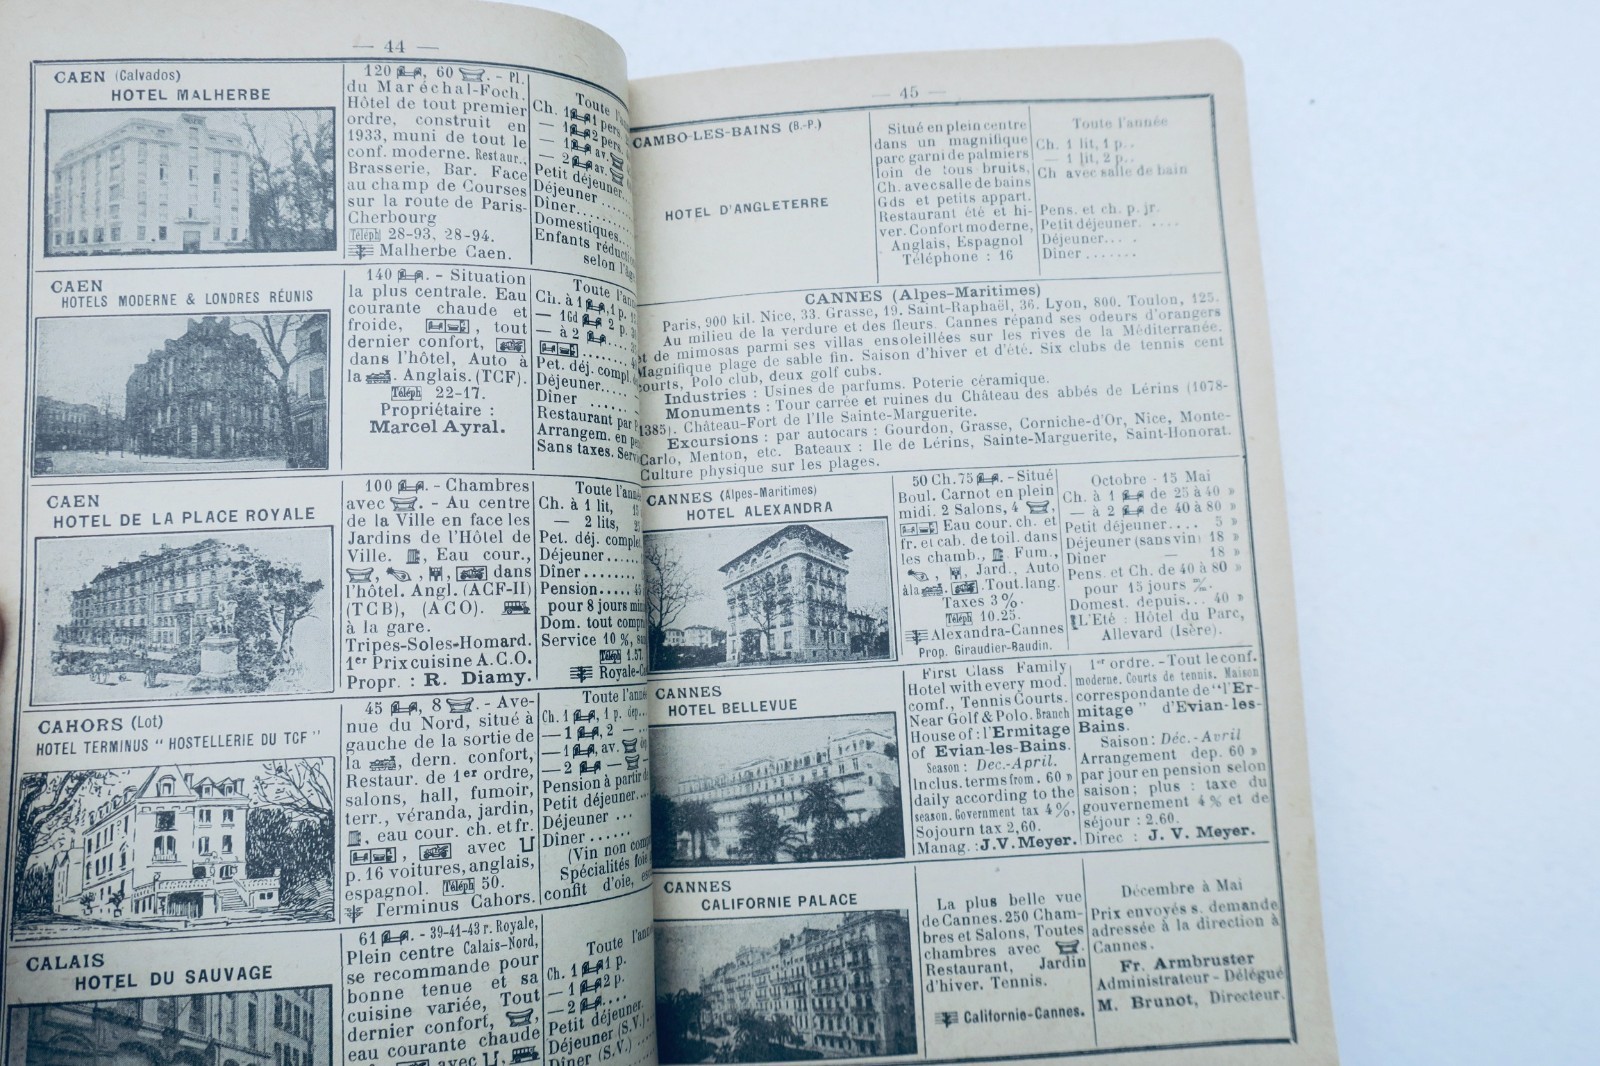 — 44 —
CAEN (Calvados)
HOTEL MALHERBE
120 , 60 . - Pl.
du Maréchal-Foch.
Hôtel de tout premier
ordre, construit en
1933, muni de tout le
conf. moderne. Restaur.,
Brasserie, Bar. Face
au champ de Courses
sur la route de Paris-
Cherbourg
Téléph 28-93, 28-94.
Malherbe Caen.
Toute l'
Ch. 1 1 pers.
— 1 2 pers.
— 1 av.
— 2 av.
Petit déjeuner.
Déjeuner
Dîner........
Domestiques...
Enfants réduction
selon l'âge
CAEN
HOTELS MODERNE & LONDRES RÉUNIS
140 . - Situation
la plus centrale. Eau
courante chaude et
froide, , tout
dernier confort,
dans l'hôtel, Auto à
la . Anglais. (TCF).
Téléph 22-17.
Propriétaire :
Marcel Ayral.
Toute l'anné
Ch. à 1 , 1 p.
— 1 Gd 2 p.
— à 2
Pet. déj. compl.
Déjeuner
Diner
Restaurant par
Arrangem. en
Sans taxes. Serv
CAEN
HOTEL DE LA PLACE ROYALE
100 . - Chambres
avec . - Au centre
de la Ville en face les
Jardins de l'Hôtel de
Ville. , Eau cour.,
, , , dans
l'hôtel. Angl. (ACF-II)
(TCB), (ACO).
à la gare.
Tripes-Soles-Homard.
1er Prix cuisine A.C.O.
Propr. : R. Diamy.
Toute l'anné
Ch. à 1 lit,
— 2 lits,
Pet. déj. complet
Déjeuner....
Dîner.......
Pension.....
pour 8 jours min
Dom. tout compr
Service 10 %,
Téléph 1.57.
Royale-
CAHORS (Lot)
HOTEL TERMINUS "HOSTELLERIE DU TCF"
45 , 8 . - Ave-
nue du Nord, situé à
gauche de la sortie de
la , dern. confort,
Restaur. de 1er ordre,
salons, hall, fumoir,
terr., véranda, jardin,
, eau cour. ch. et fr.
, avec
p. 16 voitures, anglais,
espagnol. Téléph 50.
Terminus Cahors.
Toute l'anné
Ch. 1 , 1 p. dep..
— 1 , 2 —
— 1 , av.
— 2 —
Pension à partir de
Petit déjeuner...
Déjeuner ...
Dîner......
(Vin non comp
Spécialités foie
confit d'oie,
CALAIS
HOTEL DU SAUVAGE
61 . - 39-41-43 r. Royale,
Plein centre Calais-Nord,
se recommande pour
bonne tenue et sa
cuisine variée, Tout
dernier confort, ,
eau courante chaude
avec ,
Toute l'ann
Ch. 1 1 p.
— 1 2 p.
— 2 ....
Petit déjeuner.
Déjeuner (S.V.)
Dîner (S.V.)
— 45 —
CAMBO-LES-BAINS (B.-P.)
HOTEL D'ANGLETERRE
Situé en plein centre
dans un magnifique
parc garni de palmiers
loin de tous bruits,
Ch. avec salle de bains
Gds et petits appart.
Restaurant été et hi-
ver. Confort moderne,
Anglais, Espagnol
Téléphone : 16
Toute l'année
Ch. 1 lit, 1 p..
— 1 lit, 2 p..
Ch avec salle de bain
Pens. et ch. p. jr.
Petit déjeuner. ....
Déjeuner... .
Diner .......
CANNES (Alpes-Maritimes)
Paris, 900 kil. Nice, 33. Grasse, 19. Saint-Raphaël, 36. Lyon, 800. Toulon, 125.
Au milieu de la verdure et des fleurs. Cannes répand ses odeurs d'orangers
et de mimosas parmi ses villas ensoleillées sur les rives de la Méditerranée.
Magnifique plage de sable fin. Saison d'hiver et d'été. Six clubs de tennis cent
courts, Polo club, deux golf cubs.
Industries : Usines de parfums. Poterie céramique.
Monuments : Tour carrée et ruines du Château des abbés de Lérins (1078-
1385). Château-Fort de l'Ile Sainte-Marguerite.
Excursions : par autocars : Gourdon, Grasse, Corniche-d'Or, Nice, Monte-
Carlo, Menton, etc. Bateaux : Ile de Lérins, Sainte-Marguerite, Saint-Honorat.
Culture physique sur les plages.
CANNES (Alpes-Maritimes)
HOTEL ALEXANDRA
50 Ch. 75 . - Situé
Boul. Carnot en plein
midi. 2 Salons, 4 ,
Eau cour. ch. et
fr. et cab. de toil. dans
les chamb., . Fum.,
, , Jard., Auto
à la . . Tout. lang.
Taxes 3 %.
Téléph 10.25.
Alexandra-Cannes
Prop. Giraudier-Baudin.
Octobre - 15 Mai
Ch. à 1 de 25 à 40 »
— à 2 de 40 à 80 »
Petit déjeuner.... 5 »
Déjeuner (sans vin) 18 »
Diner — 18 »
Pens. et Ch. de 40 à 80 »
pour 15 jours m/m
Domest. depuis... 40 »
L'Eté : Hôtel du Parc,
Allevard (Isère).
CANNES
HOTEL BELLEVUE
First Class Family
Hotel with every mod.
comf., Tennis Courts.
Near Golf & Polo. Branch
House of : l'Ermitage
of Evian-les-Bains.
Season : Dec.-April.
Inclus. terms from. 60 »
daily according to the
season. Government tax 4 %,
Sojourn tax 2,60.
Manag. : J.V. Meyer.
1er ordre. - Tout le conf.
moderne. Courts de tennis. Maison
correspondante de "l'Er-
mitage" d'Evian-les-
Bains.
Saison : Déc.-Avril
Arrangement dep. 60 »
par jour en pension selon
saison; plus : taxe du
gouvernement 4 % et de
séjour : 2.60.
Direc : J. V. Meyer.
CANNES
CALIFORNIE PALACE
La plus belle vue
de Cannes. 250 Cham-
bres et Salons, Toutes
chambres avec .
Restaurant, Jardin
d'hiver. Tennis.
Californie-Cannes.
Décembre à Mai
Prix envoyés s. demande
adressée à la direction à
Cannes.
Fr. Armbruster
Administrateur - Délégué
M. Brunot, Directeur.